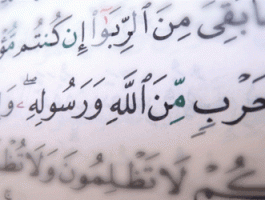 بَقِىَ مِنَ ٱلرِّبَوٰٓا۟ إِن كُنتُم
حَرْبٍ مِّنَ ٱللَّهِ وَرَسُولِهِۦ ۖ
كُمْ لَا تَظْلِمُونَ وَلَا